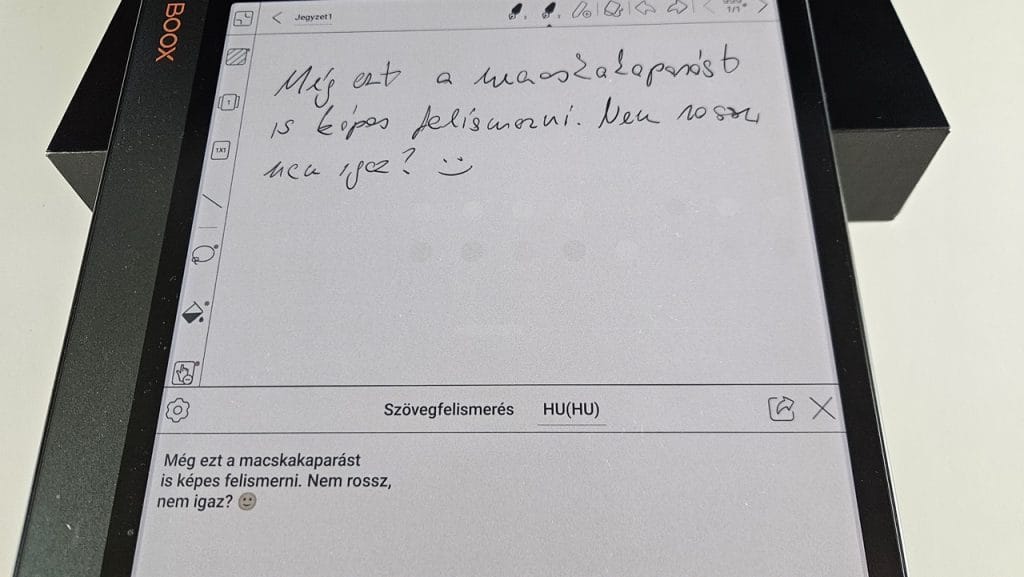 BOOX
Jegyzet1
1/1
Még ezt a macskakaparást
is képes felismerni. Nem rossz,
nem igaz? :)
1X1
Szövegfelismerés HU(HU)
Még ezt a macskakaparást
is képes felismerni. Nem rossz,
nem igaz? 🙂